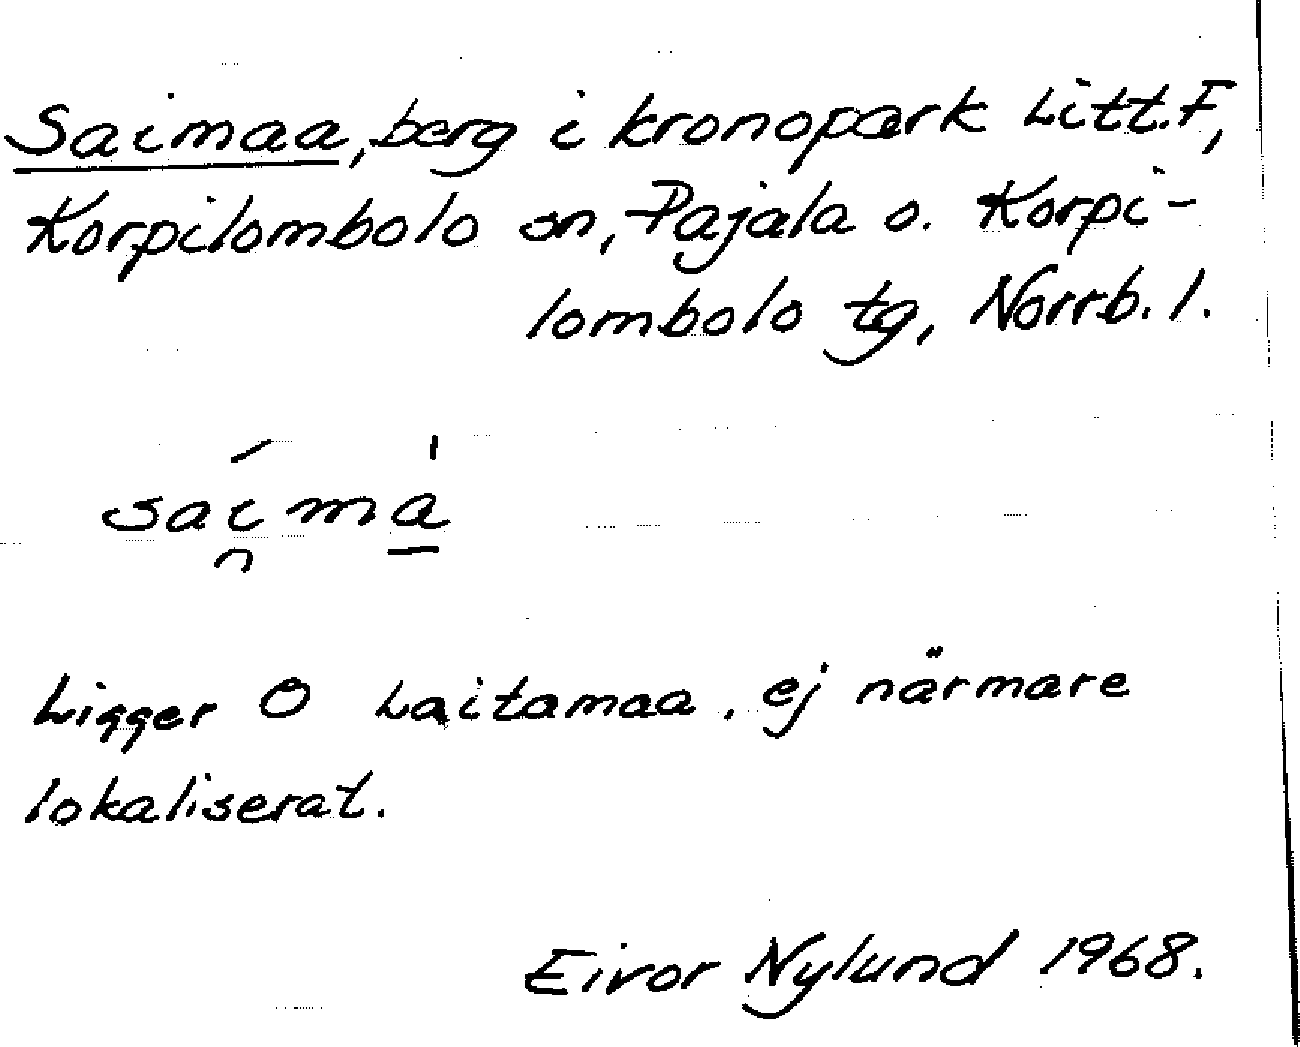 Saimaa, berg i kronopark Litt. F,
Korpilombolo sn, Pajala o. Korpi-
lombolo tg, Norrb. l.
sai̯má̱
Ligger O Laitamaa, ej närmare
lokaliserat.
Eivor Nylund 1968.